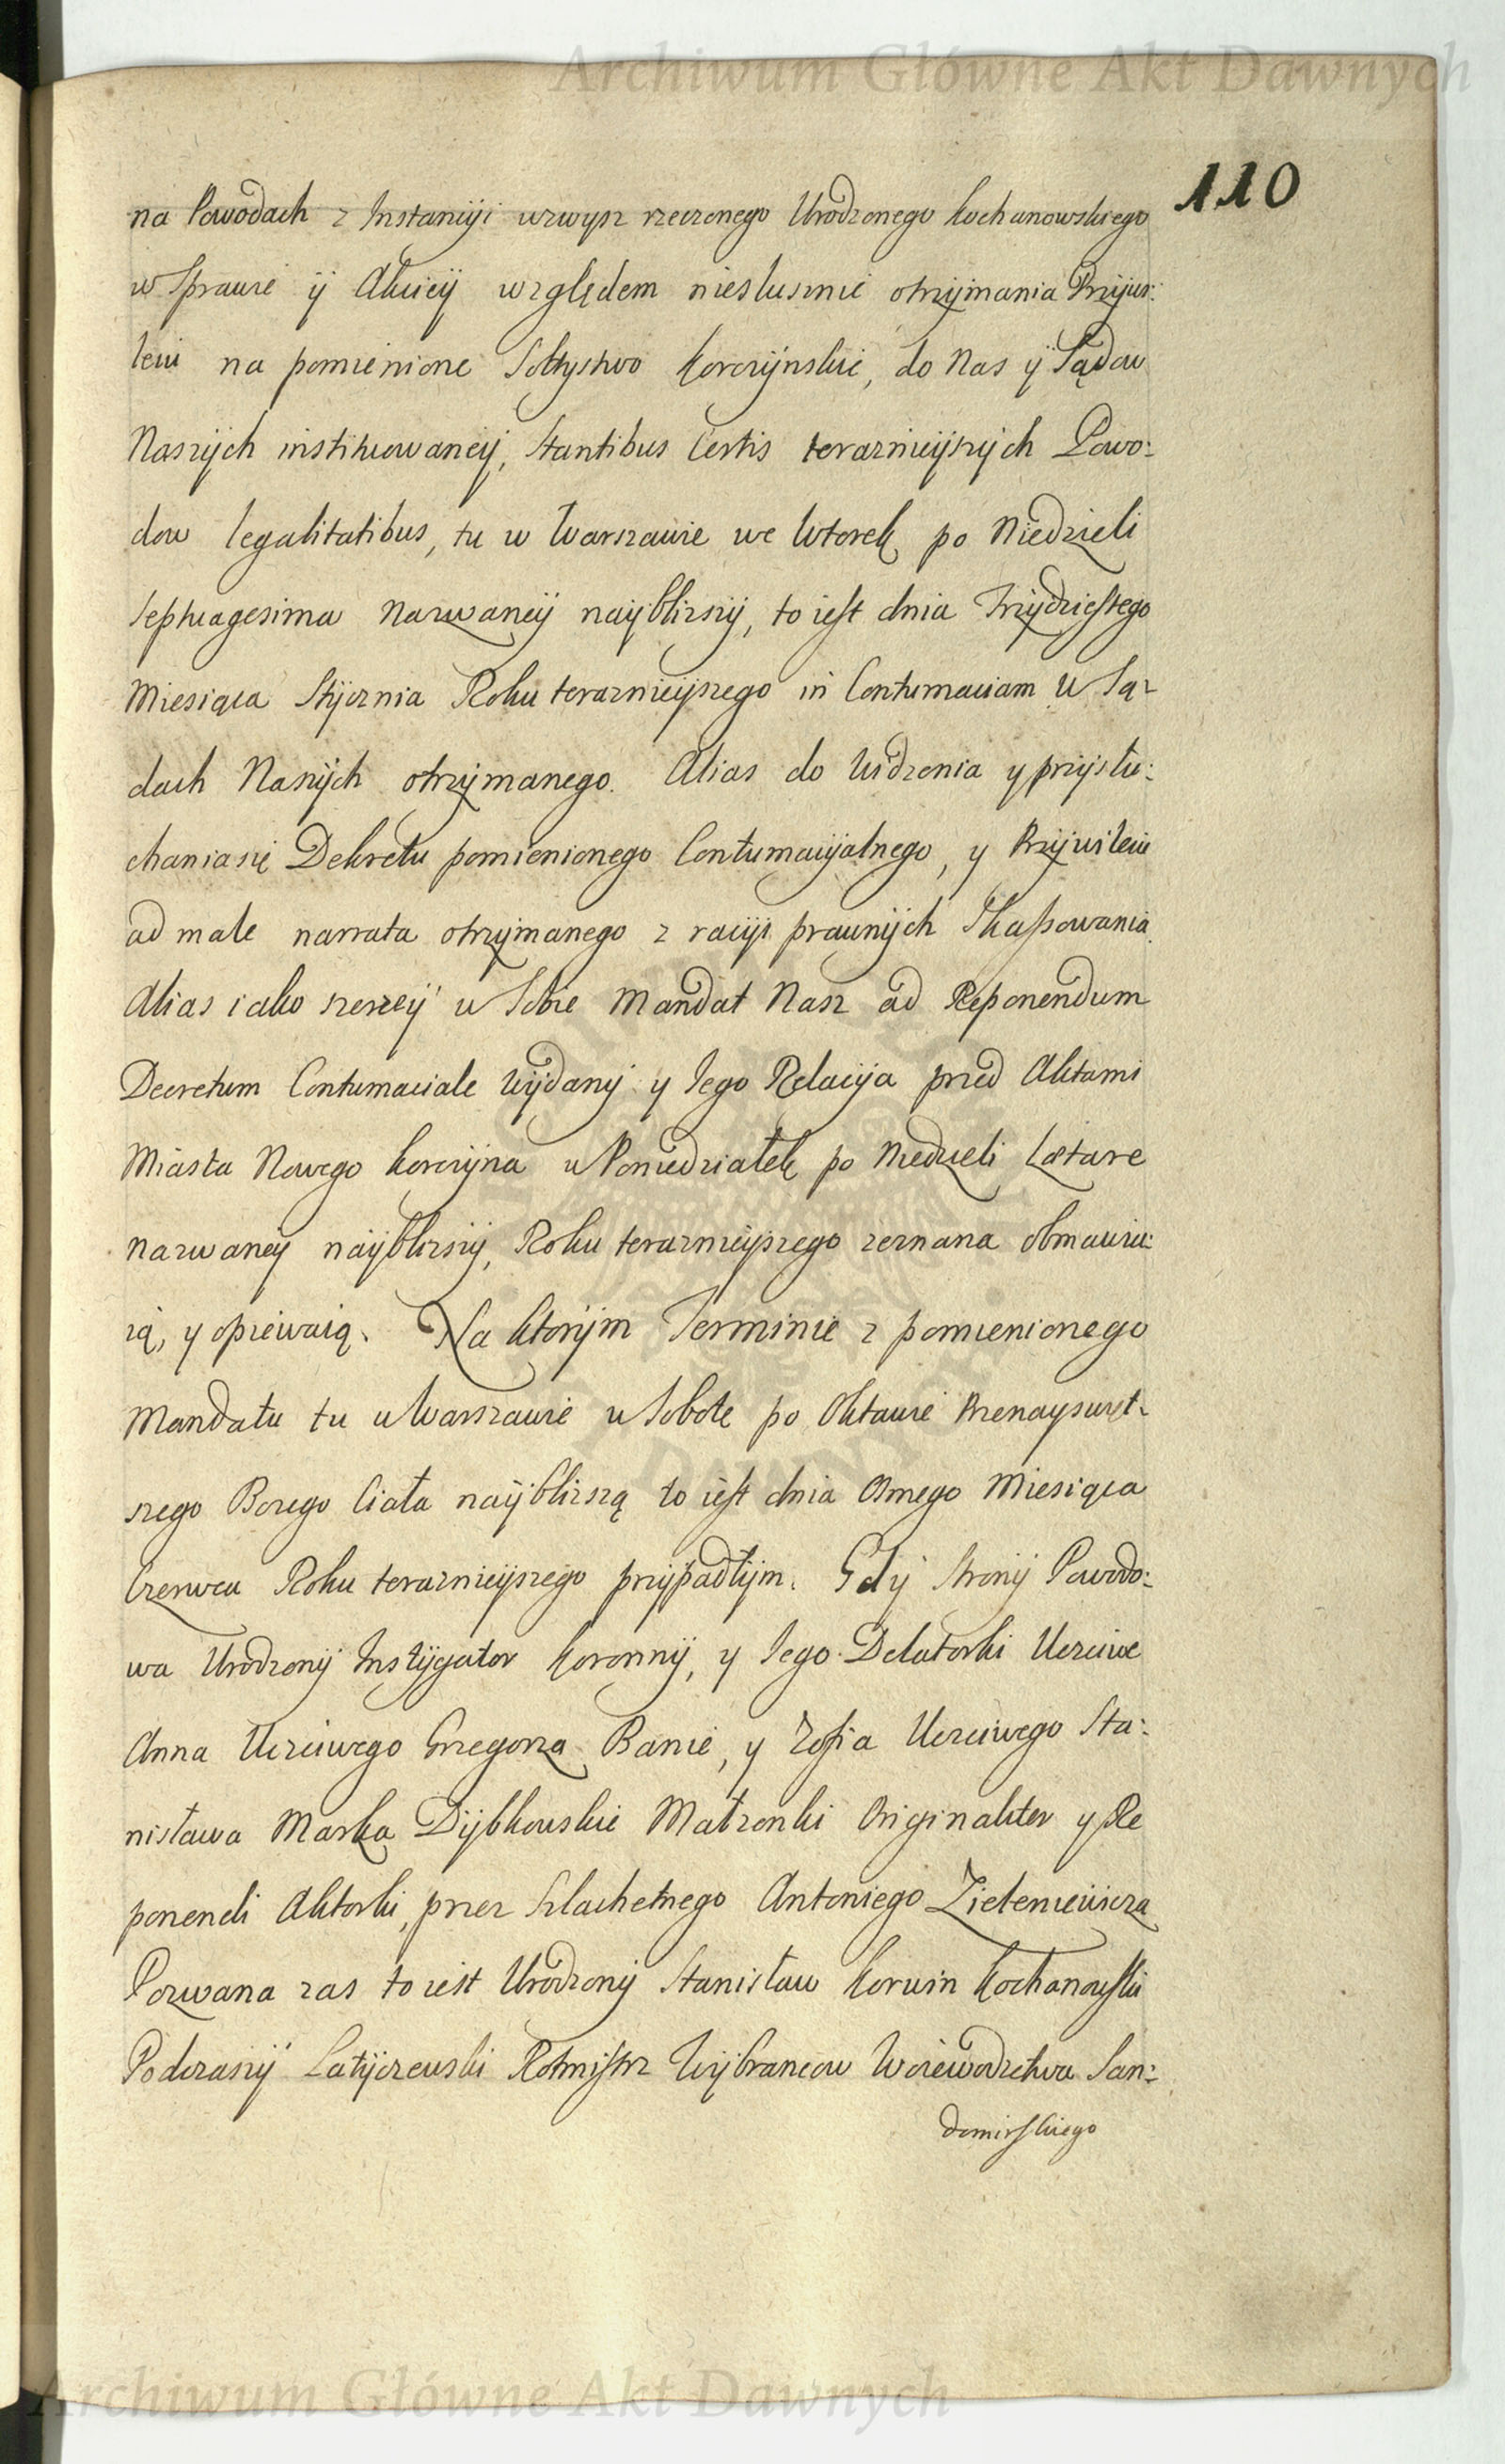 Archiwum Główne Akt Dawnych
110
na Powodach z Instancyi wzwysz rzeczonego Urodzonego Kochanowskiego
w Sprawie ÿ Akcieÿ względem niesłusznie otrzÿmania Przÿwi:
leiu na pomienione Sołtystwo Korczÿnskie, do Nas ÿ Sądow
Naszÿch instituowaneÿ, Stantibus Certis teraznieÿszÿch Powo:
dow legalitatibus, tu w Warszawie we Wtorek po Niedzieli
Septuagesima Nazwaneÿ naÿbliższÿ, to iest dnia Trzÿdziestego
Miesiąca Stÿcznia Roku teraznieÿszego in Contumaciam w Są-
dach Naszÿch otrzÿmanego. Alias do Widzenia y przysłu:
chania się Dekretu pomienionego Contumacÿalnego, y Przÿwileiu
ad male narrata otrzÿmanego z racÿi prawnÿch Skassowania.
Alias iako szerzeÿ w Sobie Mandat Nasz ad Reponendum
Decretum Contumaciale Wÿdanÿ y Iego Relacÿa przed Aktami
Miasta Nowego Korczÿna w Poniedziałek po Niedzieli Lætare
nazwaneÿ naÿblizszÿ, Roku teraznieÿszego zeznana obmawia:
ią, y opiewaią. Na ktorÿm Terminie z pomienionego
Mandatu tu w Warszawie w Sobotę po Oktawie Przenayswięt-
szego Bozego Ciała naÿblizszą to iest dnia Osmego Miesiąca
Czerwca Roku teraznieÿszego przÿpadłÿm. Gdÿ Stronÿ Powodo:
wa Urodzonÿ Instÿgator Koronnÿ, y Iego Delatorki Uczciwe
Anna Uczciwego Grzegorza Banie, y Zofia Uczciwego Sta:
nisława Marka Dÿbkowskie Małzonki Originaliter y Re
ponendi Aktorki, przez Szlachetnego Antoniego Zieleniewicza
Pozwana zas to iest Urodzonÿ Stanisław Korwin Kochanowski
Podczaszÿ Latÿczewski Rotmistrz Wÿbrancow Woiewodztwa San:
domirskiego
Archiwum Główne Akt Dawnych